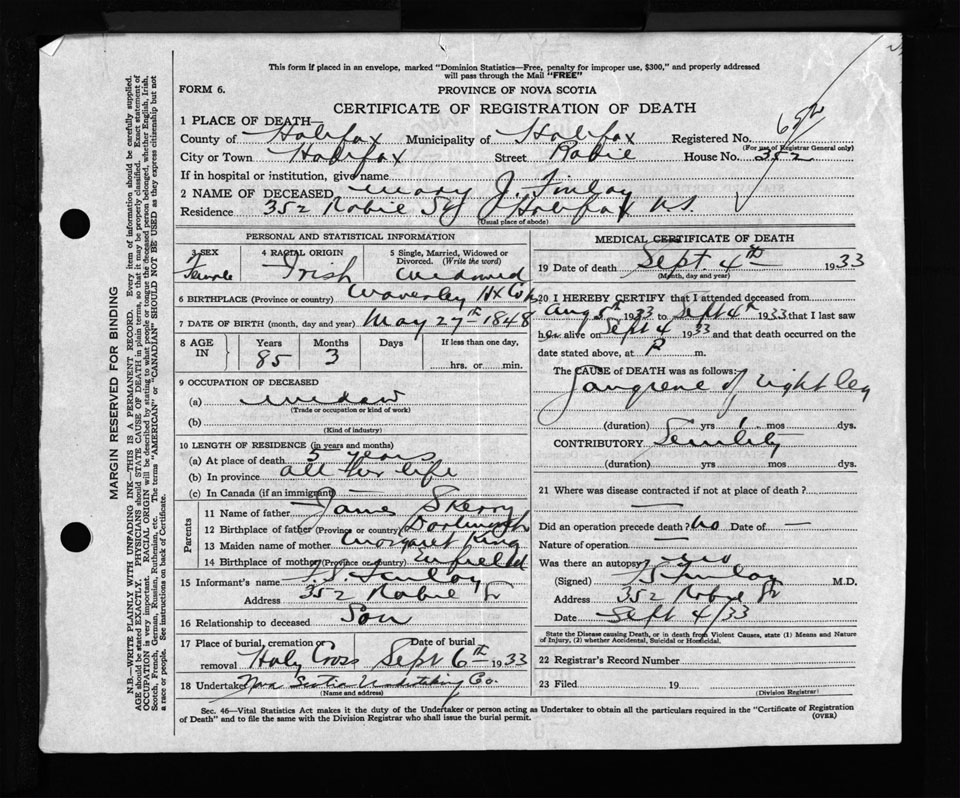 This form if placed in an envelope, marked "Dominion Statistics—Free, penalty for improper use, $300," and properly addressed
will pass through the Mail "FREE"
FORM 6. PROVINCE OF NOVA SCOTIA
CERTIFICATE OF REGISTRATION OF DEATH
1 PLACE OF DEATH—
County of Halifax Municipality of Halifax Registered No.
(For use of Registrar General only)
City or Town Halifax Street Robie House No. 352
If in hospital or institution, give name
2 NAME OF DECEASED Mary J. Finlay
Residence 352 Robie St Halifax N.S.
(Usual place of abode)
PERSONAL AND STATISTICAL INFORMATION
3 SEX 4 RACIAL ORIGIN 5 Single, Married, Widowed or
Divorced. (Write the word)
Female Irish Widowed
6 BIRTHPLACE (Province or country) Waverley Hx Co
7 DATE OF BIRTH (month, day and year) May 27th 1848
8 AGE IN Years Months Days If less than one day,
85 3 hrs. or min.
9 OCCUPATION OF DECEASED
(a) Widow
(Trade or occupation or kind of work)
(b)
(Kind of industry)
10 LENGTH OF RESIDENCE (in years and months)
(a) At place of death 5 years
(b) In province all her life
(c) In Canada (if an immigrant) —
Parents
11 Name of father James Skerry
12 Birthplace of father (Province or country) Dartmouth
13 Maiden name of mother Margaret King
14 Birthplace of mother (Province or country) Enfield
15 Informant's name Finlay
Address 352 Robie St
16 Relationship to deceased Son
17 Place of burial, cremation or Date of burial
removal Holy Cross Sept 6th 1933
18 Undertaker Nova Scotia Undertaking Co.
(Name and address)
MEDICAL CERTIFICATE OF DEATH
19 Date of death Sept. 4th 1933
(Month, day and year)
20 I HEREBY CERTIFY that I attended deceased from
Aug 5th 1933 to Sept 4th 1933 that I last saw
her alive on Sept 4 1933 and that death occurred on the
date stated above, at P m.
The CAUSE of DEATH was as follows:
Gangrene of right leg
(duration) yrs 1 mos dys.
CONTRIBUTORY Senility
(duration) yrs mos dys.
21 Where was disease contracted if not at place of death?
—
Did an operation precede death? No Date of —
Nature of operation —
Was there an autopsy? No
(Signed) Finlay M.D.
Address 352 Robie St
Date Sept 4/33
State the Disease causing Death, or in death from Violent Causes, state (1) Means and Nature
of Injury, (2) whether Accidental, Suicidal or Homicidal.
22 Registrar's Record Number
23 Filed 19
(Division Registrar)
Sec. 46—Vital Statistics Act makes it the duty of the Undertaker or person acting as Undertaker to obtain all the particulars required in the "Certificate of Registration
of Death" and to file the same with the Division Registrar who shall issue the burial permit. (OVER)
MARGIN RESERVED FOR BINDING
N.B.—WRITE PLAINLY WITH UNFADING INK—THIS IS A PERMANENT RECORD. Every item of information should be carefully supplied.
AGE should be stated EXACTLY. PHYSICIANS should STATE CAUSE OF DEATH in plain terms, so that it may be properly classified. Exact statement of
OCCUPATION is very important. RACIAL ORIGIN will be described by stating to what people or tongue the deceased person belonged, whether English, Irish,
Scotch, French, German, Russian, Ruthenian, etc. The terms "AMERICAN" or "CANADIAN" SHOULD NOT BE USED as they express citizenship but not
a race or people. See instructions on back of Certificate.